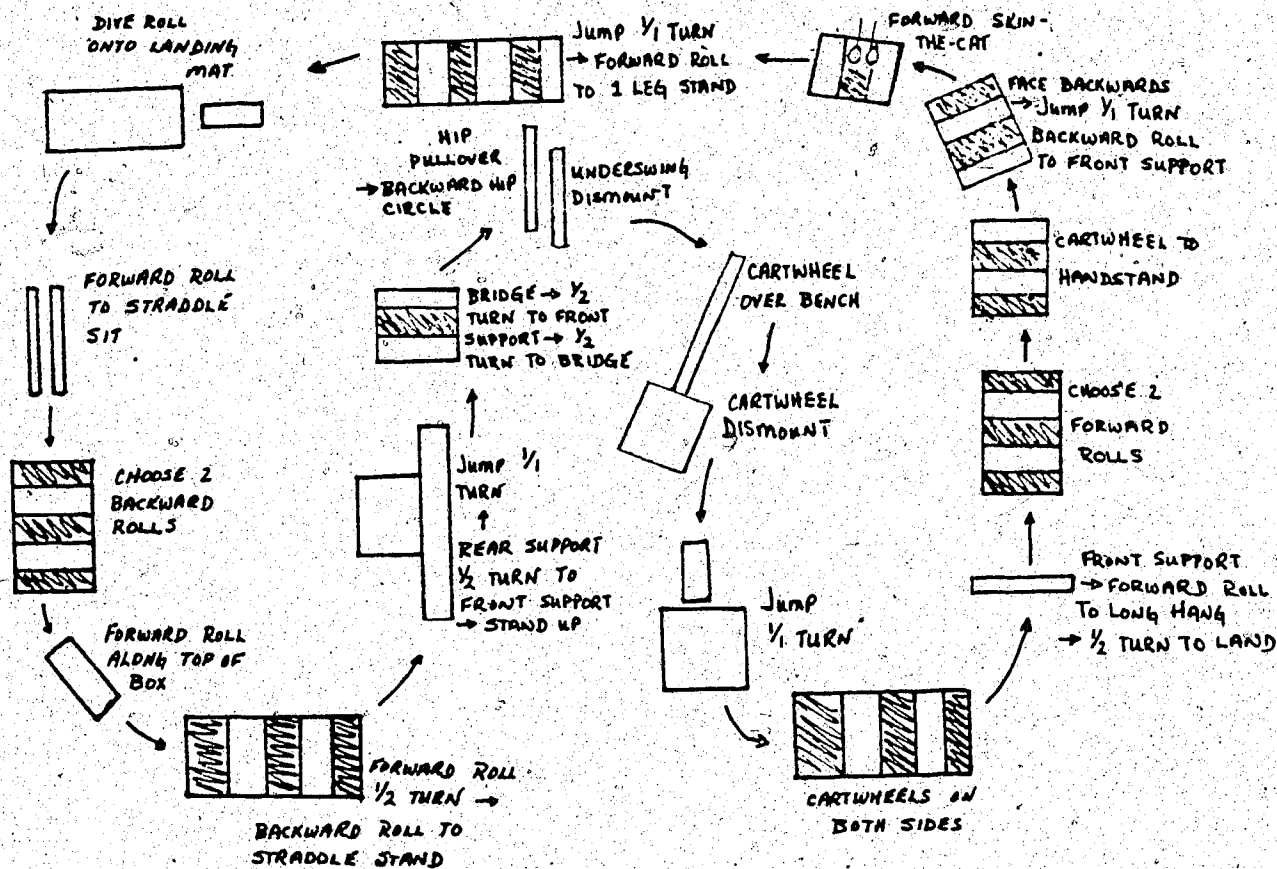 DIVE ROLL
ONTO LANDING
MAT
Jump 1/1 TURN
→ FORWARD ROLL
TO 1 LEG STAND
FORWARD SKIN-
THE-CAT
FACE BACKWARDS
→ Jump 1/1 TURN
BACKWARD ROLL
TO FRONT SUPPORT
HIP
PULLOVER
→ BACKWARD HIP
CIRCLE
UNDERSWING
DISMOUNT
CARTWHEEL TO
HANDSTAND
FORWARD ROLL
TO STRADDLE
SIT
BRIDGE → 1/2
TURN TO FRONT
SUPPORT → 1/2
TURN TO BRIDGE
CARTWHEEL
OVER BENCH
CARTWHEEL
DISMOUNT
CHOOSE 2
FORWARD
ROLLS
CHOOSE 2
BACKWARD
ROLLS
Jump 1/1
TURN
REAR SUPPORT
1/2 TURN TO
FRONT SUPPORT
→ STAND UP
FRONT SUPPORT
→ FORWARD ROLL
TO LONG HANG
→ 1/2 TURN TO LAND
Jump
1/1 TURN
FORWARD ROLL
ALONG TOP OF
BOX
FORWARD ROLL
1/2 TURN →
BACKWARD ROLL TO
STRADDLE STAND
CARTWHEELS ON
BOTH SIDES